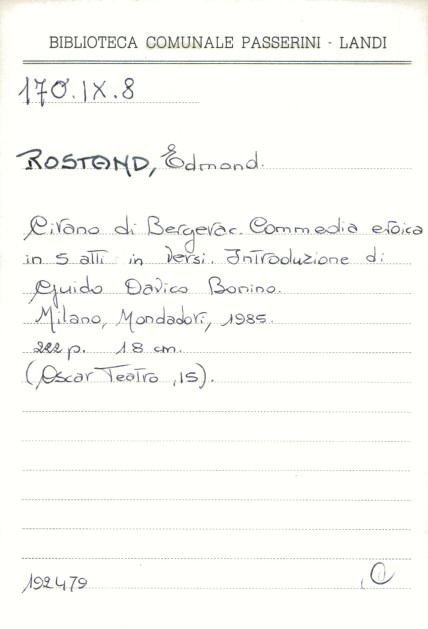 BIBLIOTECA COMUNALE PASSERINI - LANDI
170.IX.8
ROSTAND, Edmond.
Cirano di Bergerac. Commedia eroica
in 5 atti in versi. Introduzione di
Guido Davico Bonino.
Milano, Mondadori, 1985.
222 p. 18 cm.
(Oscar Teatro, 15).
192479